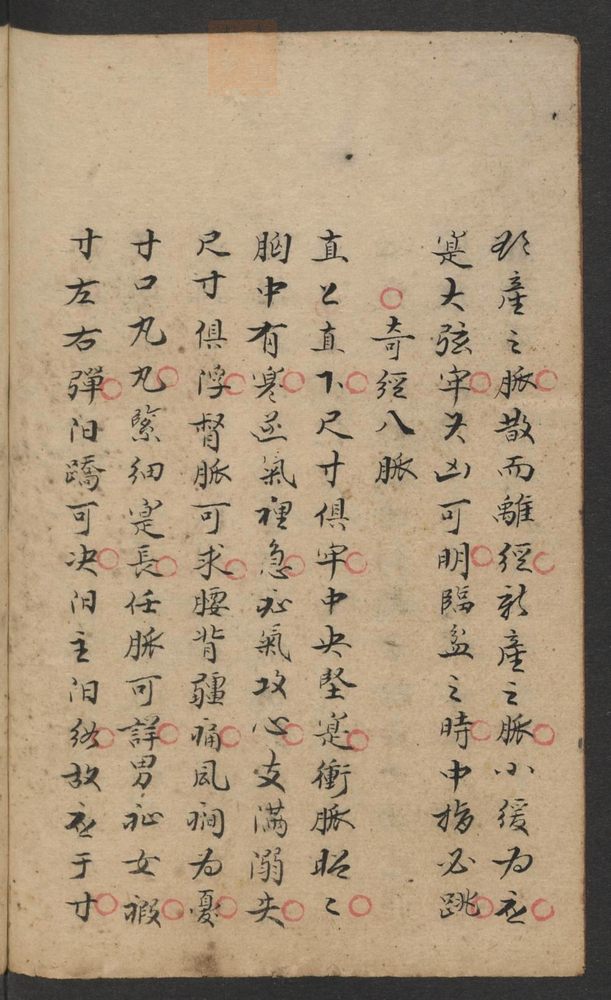 欲產之脈散而離經新產之脈小緩为应
寔大弦牢其凶可明臨盆之時中指必跳
奇經八脈
直上直下尺寸俱牢中央坚寔衝脈昭〻
胸中有寒逆氣裡急疝氣攻心支满溺失
尺寸俱浮督脈可求腰背疆痛風癎为憂
寸口丸丸緊细寔長任脈可詳男疝女瘕
寸左右彈阳蹻可决阳主阳络故应于寸